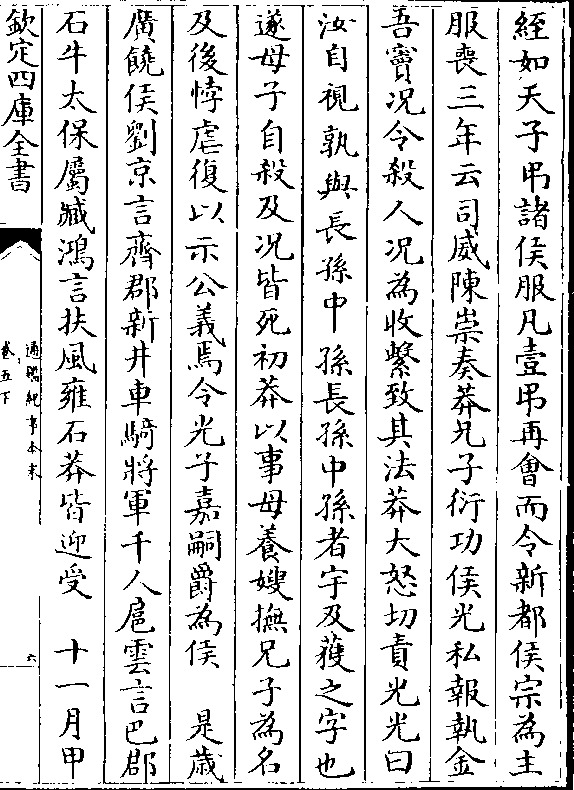 絰如天子弔諸侯服凡壹弔再會而令新都侯宗為主
服喪三年云司威陳崇奏莽兄子衍功侯光私報執金
吾竇况令殺人况為收繫致其法莽大怒切責光光曰
汝自視孰與長孫中孫長孫中孫者宇及獲之字也
遂母子自殺及况皆死初莽以事母養嫂撫兄子為名
及後悖虐復以示公義焉令光子嘉嗣爵為侯　是歲
廣饒侯劉京言齊郡新井車騎將軍千人扈雲言巴郡
石牛太保屬臧鴻言扶風雍石莽皆迎受　十一月甲
欽定四庫全書
通鑑紀事本末
卷五下
六